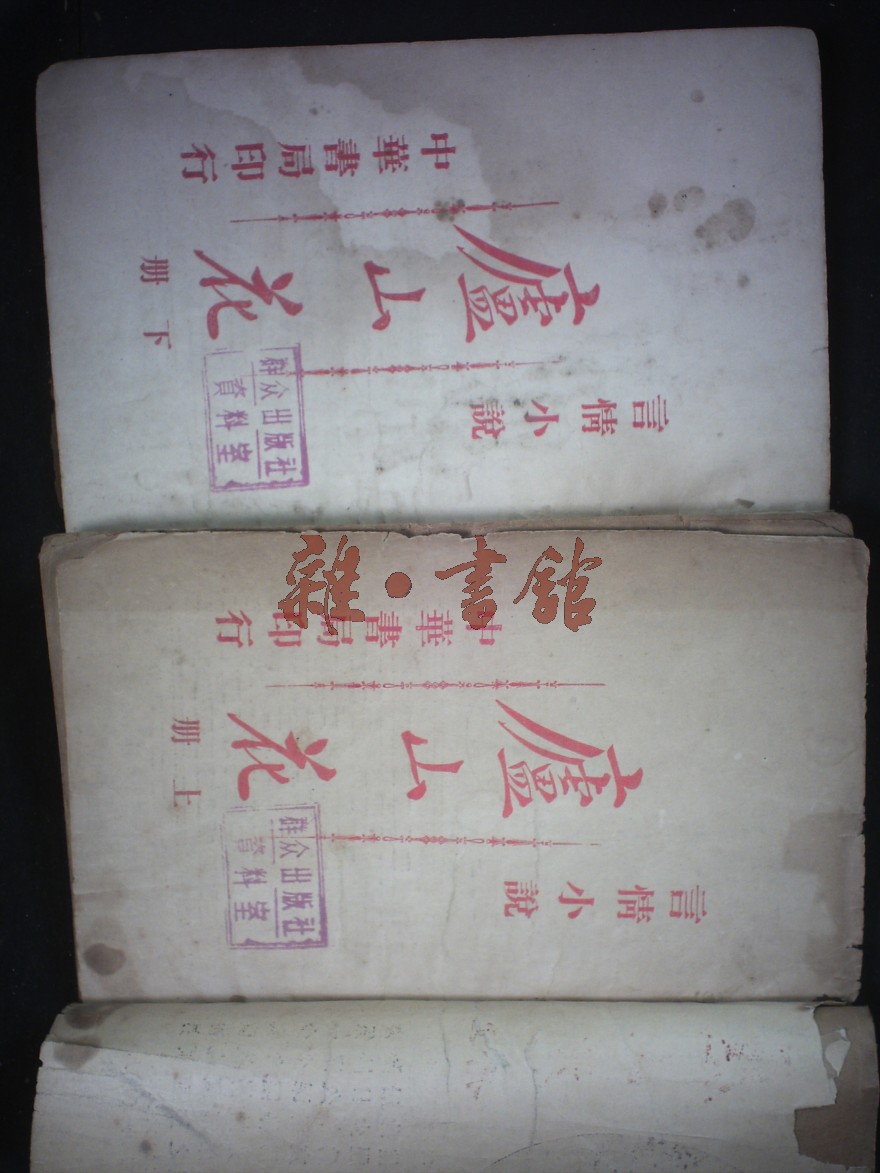 言情小說
廬山花
下冊
中華書局印行
群众出版社
資料室
雜·書館
言情小說
廬山花
上冊
中華書局印行
群众出版社
資料室